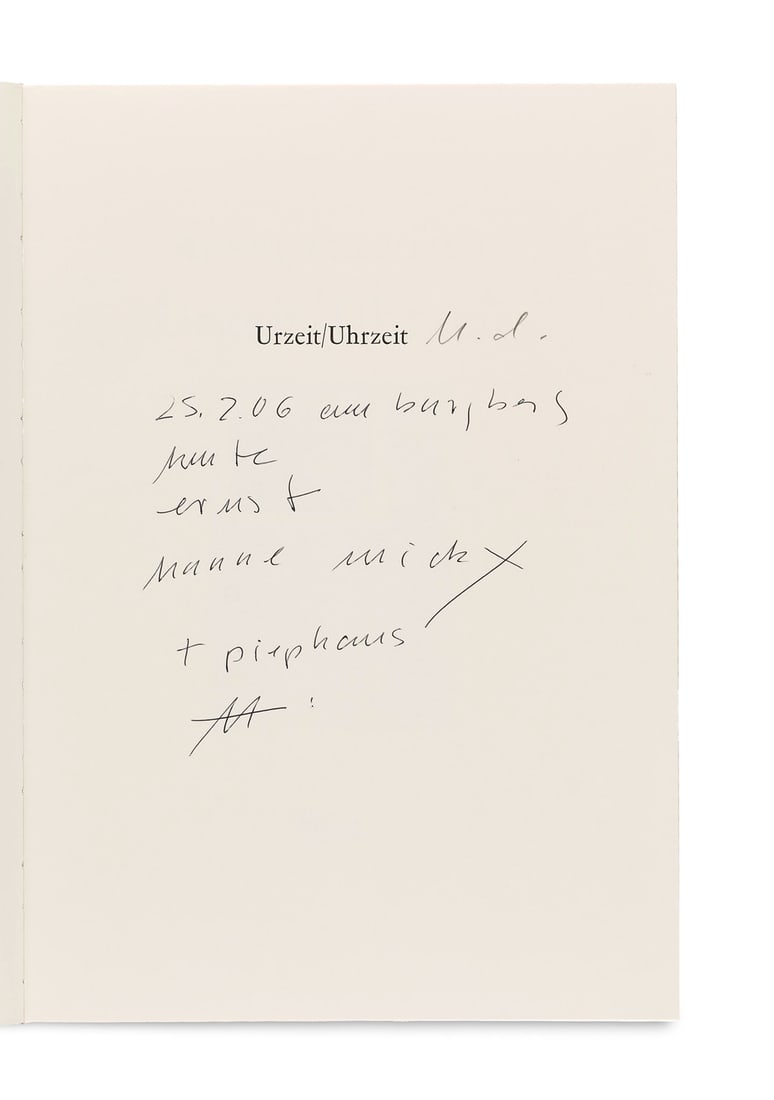 Urzeit/Uhrzeit U. d.
25.2.06 am burgberg
ernst
nanne mick
+ piephans